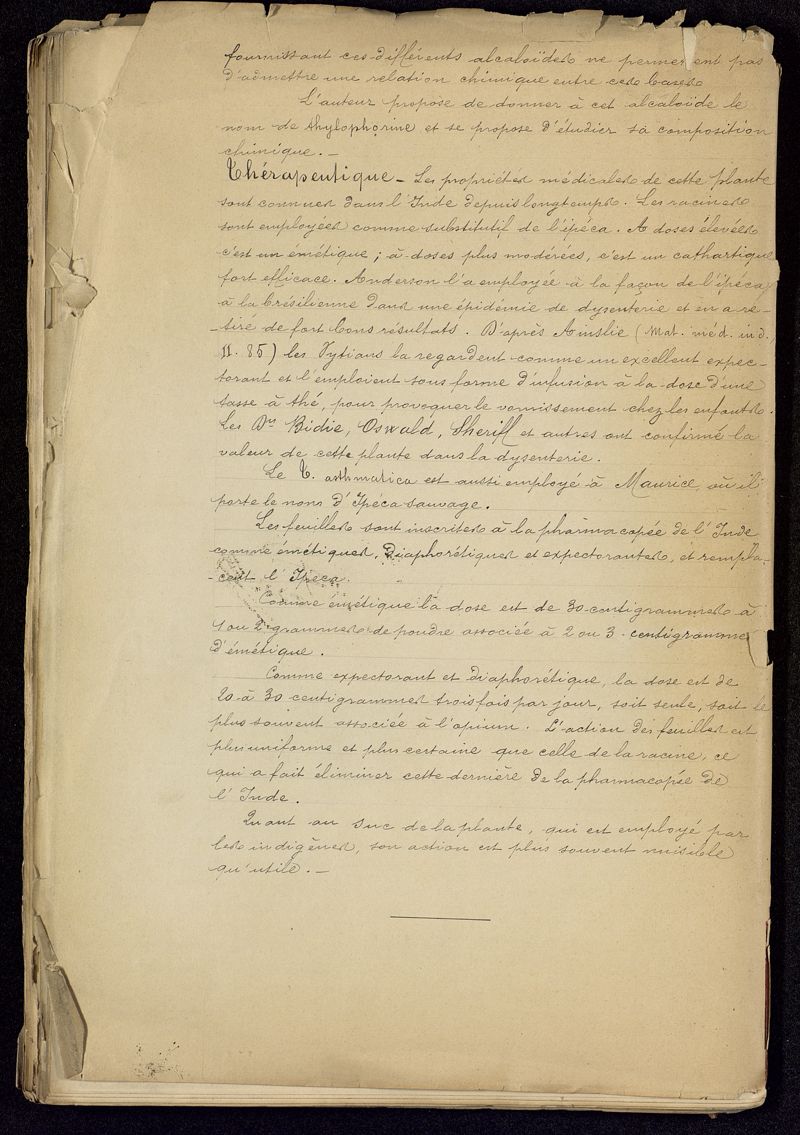 fournissant ces différents alcaloïdes ne permettent pas
d'admettre une relation chimique entre ces bases
L'auteur propose de donner à cet alcaloïde le
nom de thylophorine et se propose d'étudier sa composition
chimique. _
Thérapeutique _ Les propriétés médicales de cette plante
sont connues dans l'Inde depuis longtemps. Les racines
sont employées comme substitutif de l'ipéca. A doses élevées
c'est un émétique ; à doses plus modérées, c'est un cathartique
fort efficace. Anderson l'a employée à la façon de l'ipéca
à la brésilienne dans une épidémie de dysenterie et en a re-
-tiré de fort bons résultats. D'après Ainslie (Mat. méd. ind.
II. 85) les Vytians la regardent comme un excellent expec-
-torant et l'emploient sous forme d'infusion à la dose d'une
tasse à thé, pour provoquer le vomissement chez les enfants.
Les Drs Bidie, Oswald, Sheriff et autres ont confirmé la
valeur de cette plante dans la dysenterie.
Le T. asthmatica est aussi employé à Maurice, où il
porte le nom d'Ipéca sauvage.
Les feuilles sont inscrites à la pharmacopée de l'Inde
comme émétiques, diaphorétiques et expectorantes, et rempla-
-cent l'Ipeca.
Comme émétique la dose est de 30 centigrammes à
1 ou 2 grammes de poudre associée à 2 ou 3 centigrammes
d'émétique.
Comme expectorant et diaphorétique, la dose est de
20 à 30 centigrammes trois fois par jour, soit seule, soit le
plus souvent associée à l'opium. L'action des feuilles est
plus uniforme et plus certaine que celle de la racine, ce
qui a fait éliminer cette dernière de la pharmacopée de
l'Inde.
Quant au suc de la plante, qui est employé par
les indigènes, son action est plus souvent nuisible
qu'utile. _